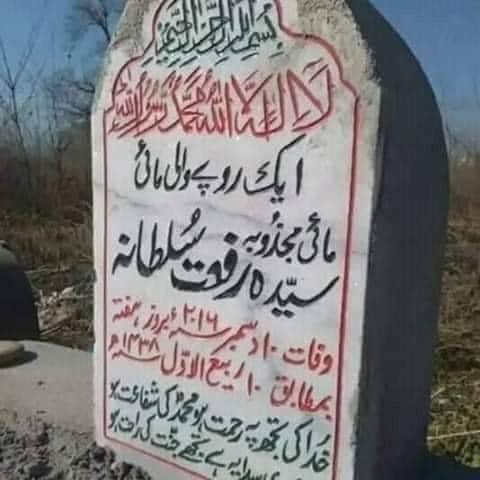 بسم اللہ الرحمن الرحیم
لا الہ الا اللہ محمد رسول اللہ
ایک روپے والی مائی
مائی مجذوبہ
سیّدہ رفعت سُلطانہ
وفات ۱۰ دسمبر ۲۰۱۶ء بروز ہفتہ
بمطابق ۱۰ ربیع الاوّل ۱۴۳۸ھ
خدا کی تجھ پہ رحمت ہو محمدؐ کی شفاعت ہو
ہے تجھے جنّت کی راحت ہو